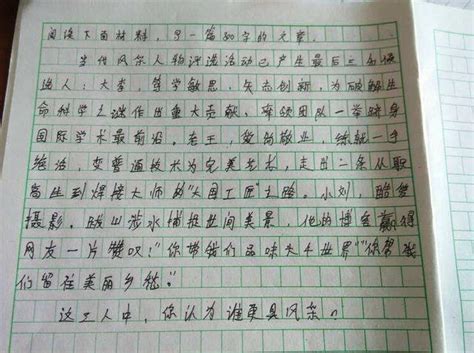 阅读下面材料，写一篇800字的文章。
当代风尔人物评选活动已产生最后三名候
选人：大李，笃学敏思，矢志创新，为破解生
命科学之谜作出重大贡献，率领团队一举跻身
国际学术最前沿。老王，爱岗敬业，练就一手
绝活，变普通技术为完美艺术，走出一条从职
高生到焊接大师的"大国工匠"之路。小刘，酷爱
摄影，跋山涉水捕捉世间美景，他的博客赢得
网友一片赞叹："你带我们品味大千世界""你帮我
们留住美丽乡愁"。
这三人中，你认为谁更具风采？